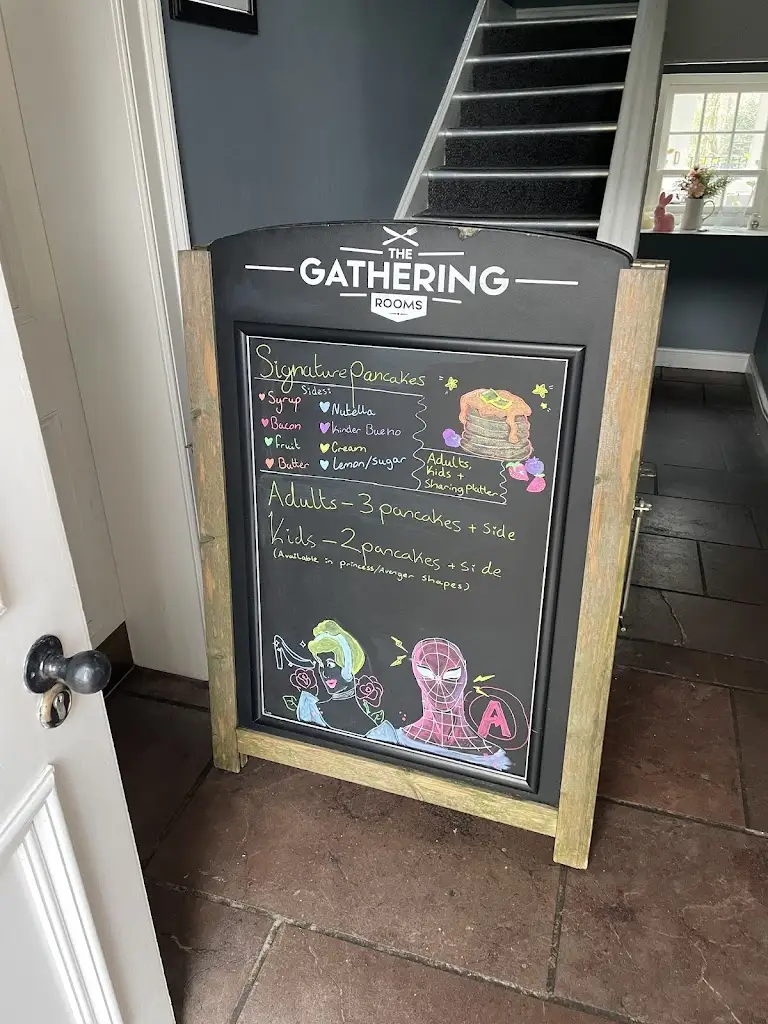 THE
GATHERING
ROOMS
Signature Pancakes
Sides:
Syrup
Nutella
Bacon
Kinder Bueno
Fruit
Cream
Butter
Lemon/sugar
Adults,
Kids +
Sharing Platter
Adults - 3 pancakes + Side
Kids - 2 pancakes + Side
(Available in princess/Avenger shapes)
A